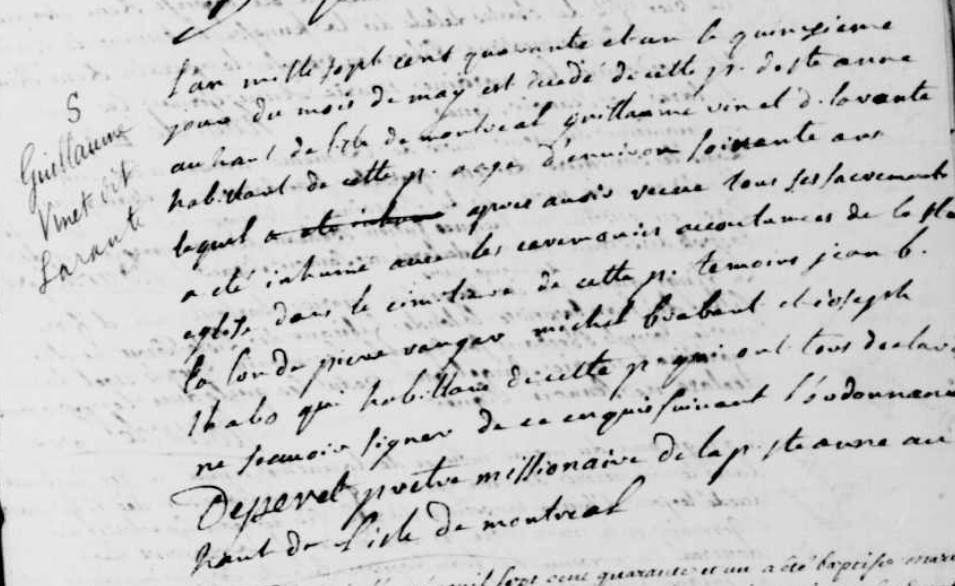 S
Guillaume
Vinet dit
Larante
L'an mille sept cent quarante et un le quinzieme
jour du mois de may est decedé de cette p. de ste anne
au haut de l'isle de montreal guillaume vinet d. larante
habitant de cette p. agé d'environ soissante ans
lequel a eté inhumé apres avoir recue tous ses sacrements
a eté inhumé avec les ceremonies accoutumees de la ste
eglise dans le cimetiere de cette p. temoins jean b.
la londe pierre ranger michel brabant et joseph
habitans de cette p. qui ont tous declaré
ne scauoir signer de ce enquis suivant l'ordonnance
Deperet prêtre missionaire de la p. ste anne au
haut de L'isle de montreal
mil sept cent quarante et un a eté baptisé marie